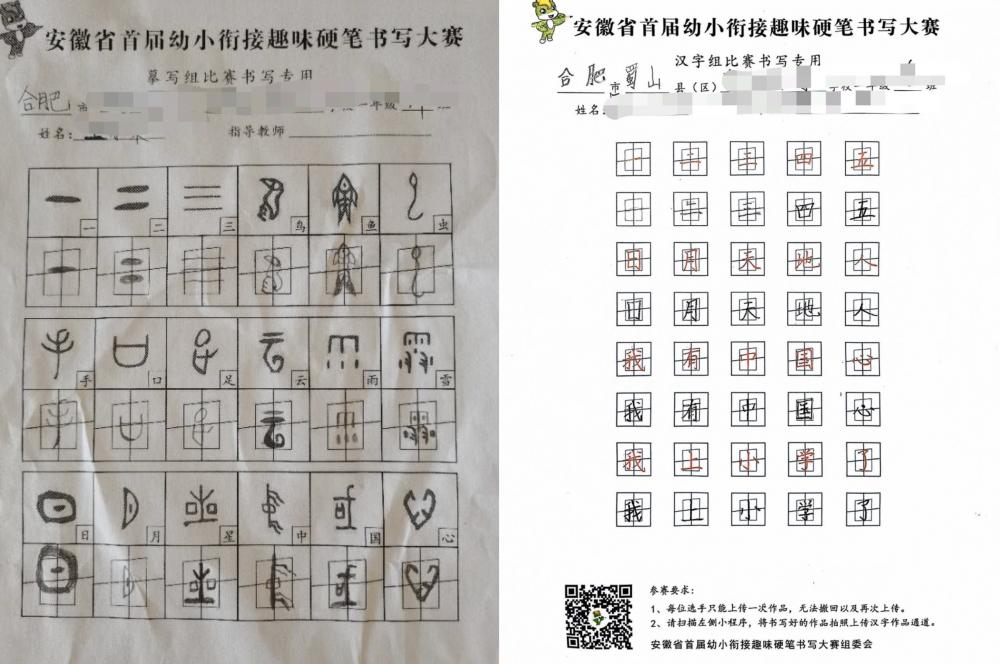 安徽省首届幼小衔接趣味硬笔书写大赛
摹写组比赛书写专用
合肥市
年级 班
姓名: 指导教师
一 二 三 鸟 鱼 虫
手 口 足 云 雨 雪
日 月 星 中 国 心
安徽省首届幼小衔接趣味硬笔书写大赛
汉字组比赛书写专用
合肥市蜀山县(区) 学校一年级 班
姓名:
一 二 三 四 五
一 二 三 四 五
日 月 天 地 人
日 月 天 地 人
我 有 中 国 心
我 有 中 国 心
我 上 小 学 了
我 上 小 学 了
参赛要求:
1、每位选手只能上传一次作品,无法撤回以及再次上传。
2、请扫描左侧小程序,将书写好的作品拍照上传汉字作品通道。
安徽省首届幼小衔接趣味硬笔书写大赛组委会